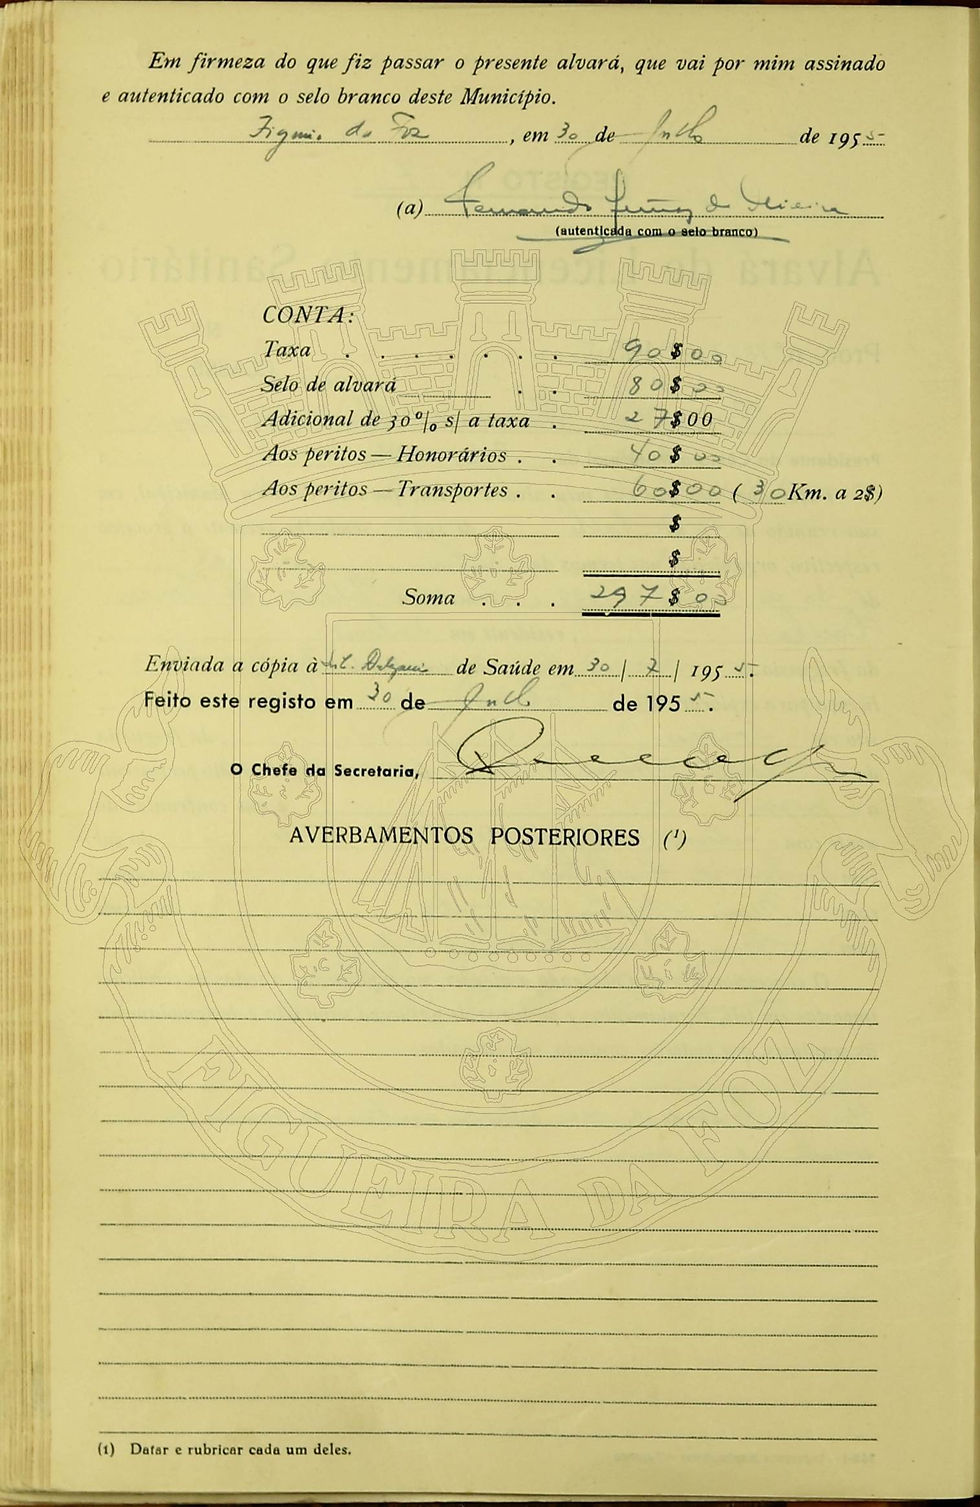 Em firmeza do que fiz passar o presente alvará, que vai por mim assinado
e autenticado com o selo branco deste Município.
Figueira da Foz, em 30 de Julho de 1955
(a) Fernando de Oliveira
(autenticada com o selo branco)
CONTA:
Taxa . . . . . . . 90$00
Selo de alvará . . 80$00
Adicional de 30% s/ a taxa . 27$00
Aos peritos — Honorários . . 40$00
Aos peritos — Transportes . . 60$00 (30 Km. a 2$)
$
$
Soma . . . 297$00
Enviada a cópia à de Saúde em 30 / 7 / 1955.
Feito este registo em 30 de Julho de 1955.
O Chefe da Secretaria,
AVERBAMENTOS POSTERIORES (¹)
FIGUEIRA DA FOZ
(1) Datar e rubricar cada um deles.